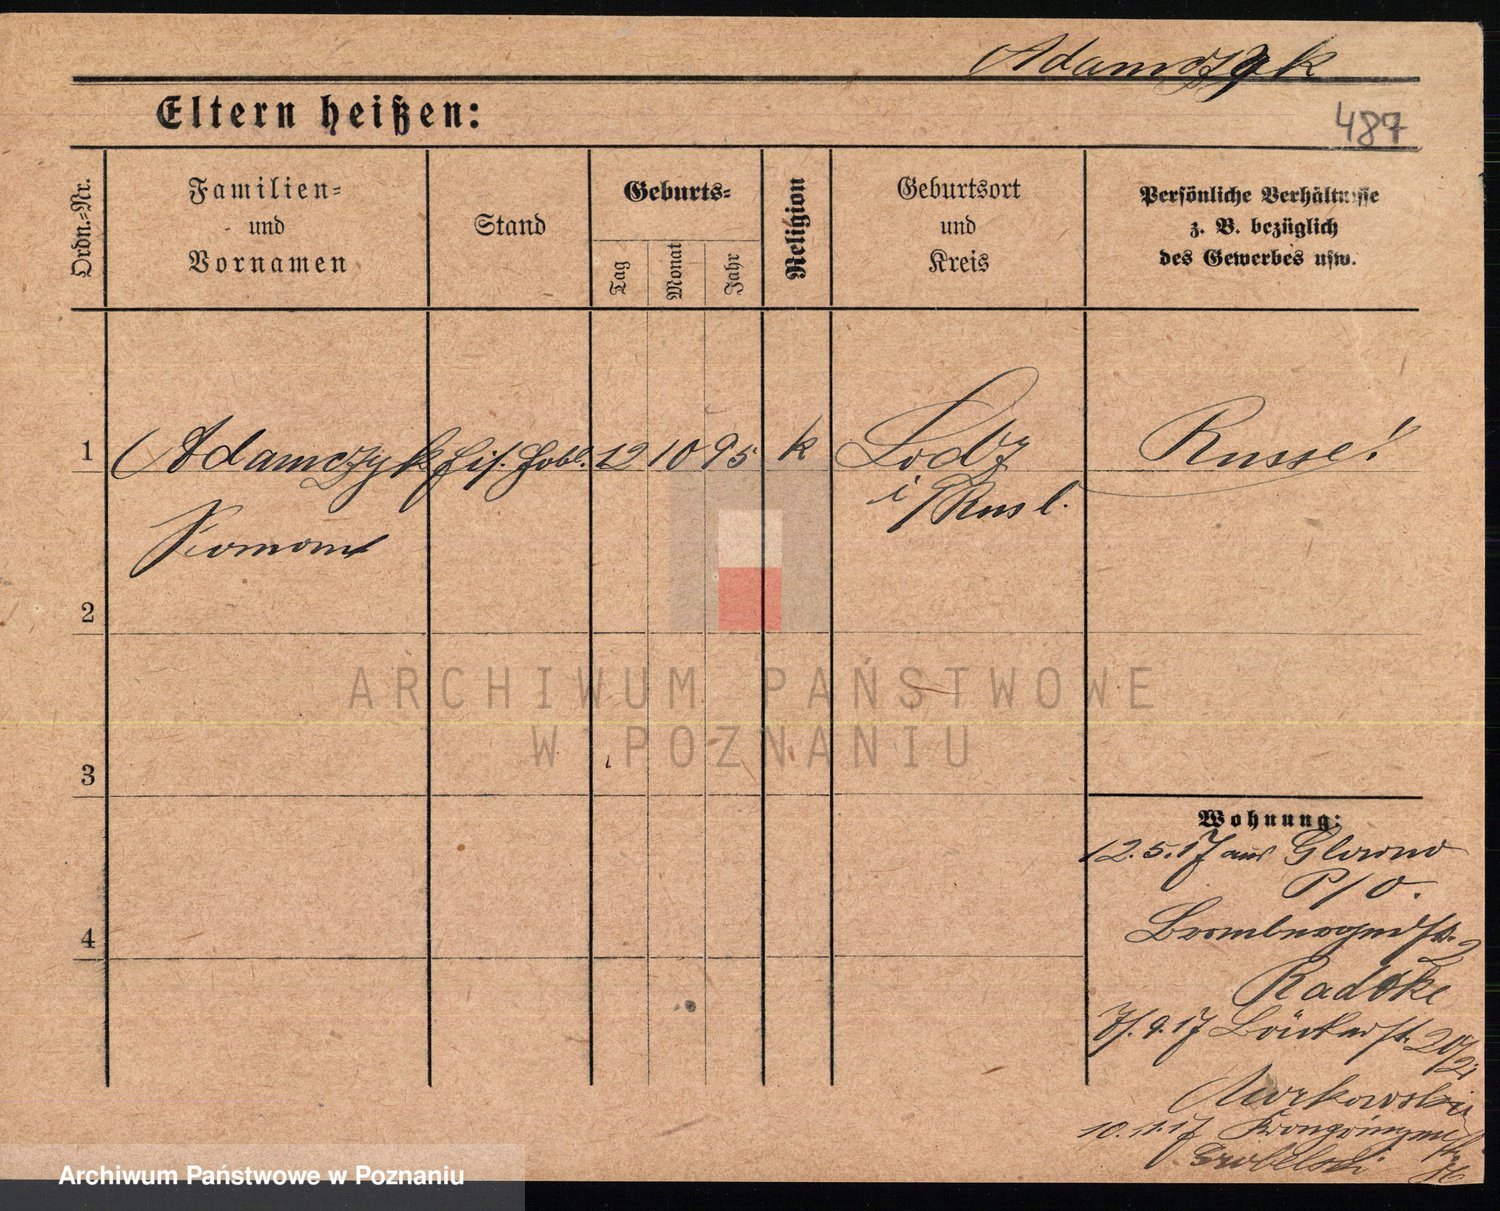 Adamczyk
Eltern heißen:
487
Ordn.=Nr.
Familien=
und
Vornamen
Stand
Geburts=
Tag
Monat
Jahr
Religion
Geburtsort
und
Kreis
Persönliche Verhältnisse
z. B. bezüglich
des Gewerbes usw.
1 Adamczyk 12 10 95 k Lodz Russe!
i/Rusl.
Roman
2
3
4
Wohnung:
12.5.17 aus Glowno
P/O.
Brombergerstr. 2
Radtke
7/.9.17 Bäckerstr. 20/21
Murkowski
10.11.17 Kronprinzenstr. 86
Grobelski
ARCHIWUM PAŃSTWOWE
W POZNANIU
Archiwum Państwowe w Poznaniu